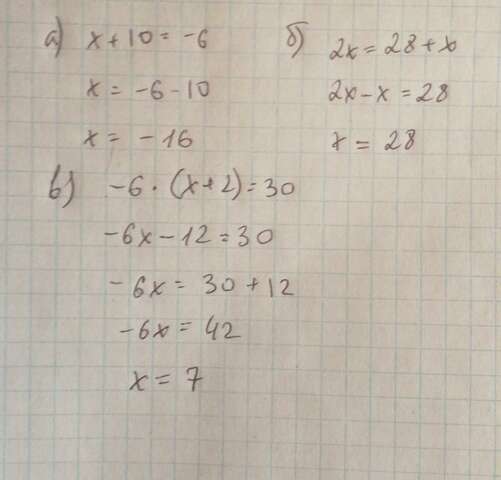 а) x + 10 = -6
x = -6 - 10
x = -16
б) 2x = 28 + x
2x - x = 28
x = 28
в) -6 · (x + 2) = 30
-6x - 12 = 30
-6x = 30 + 12
-6x = 42
x = 7